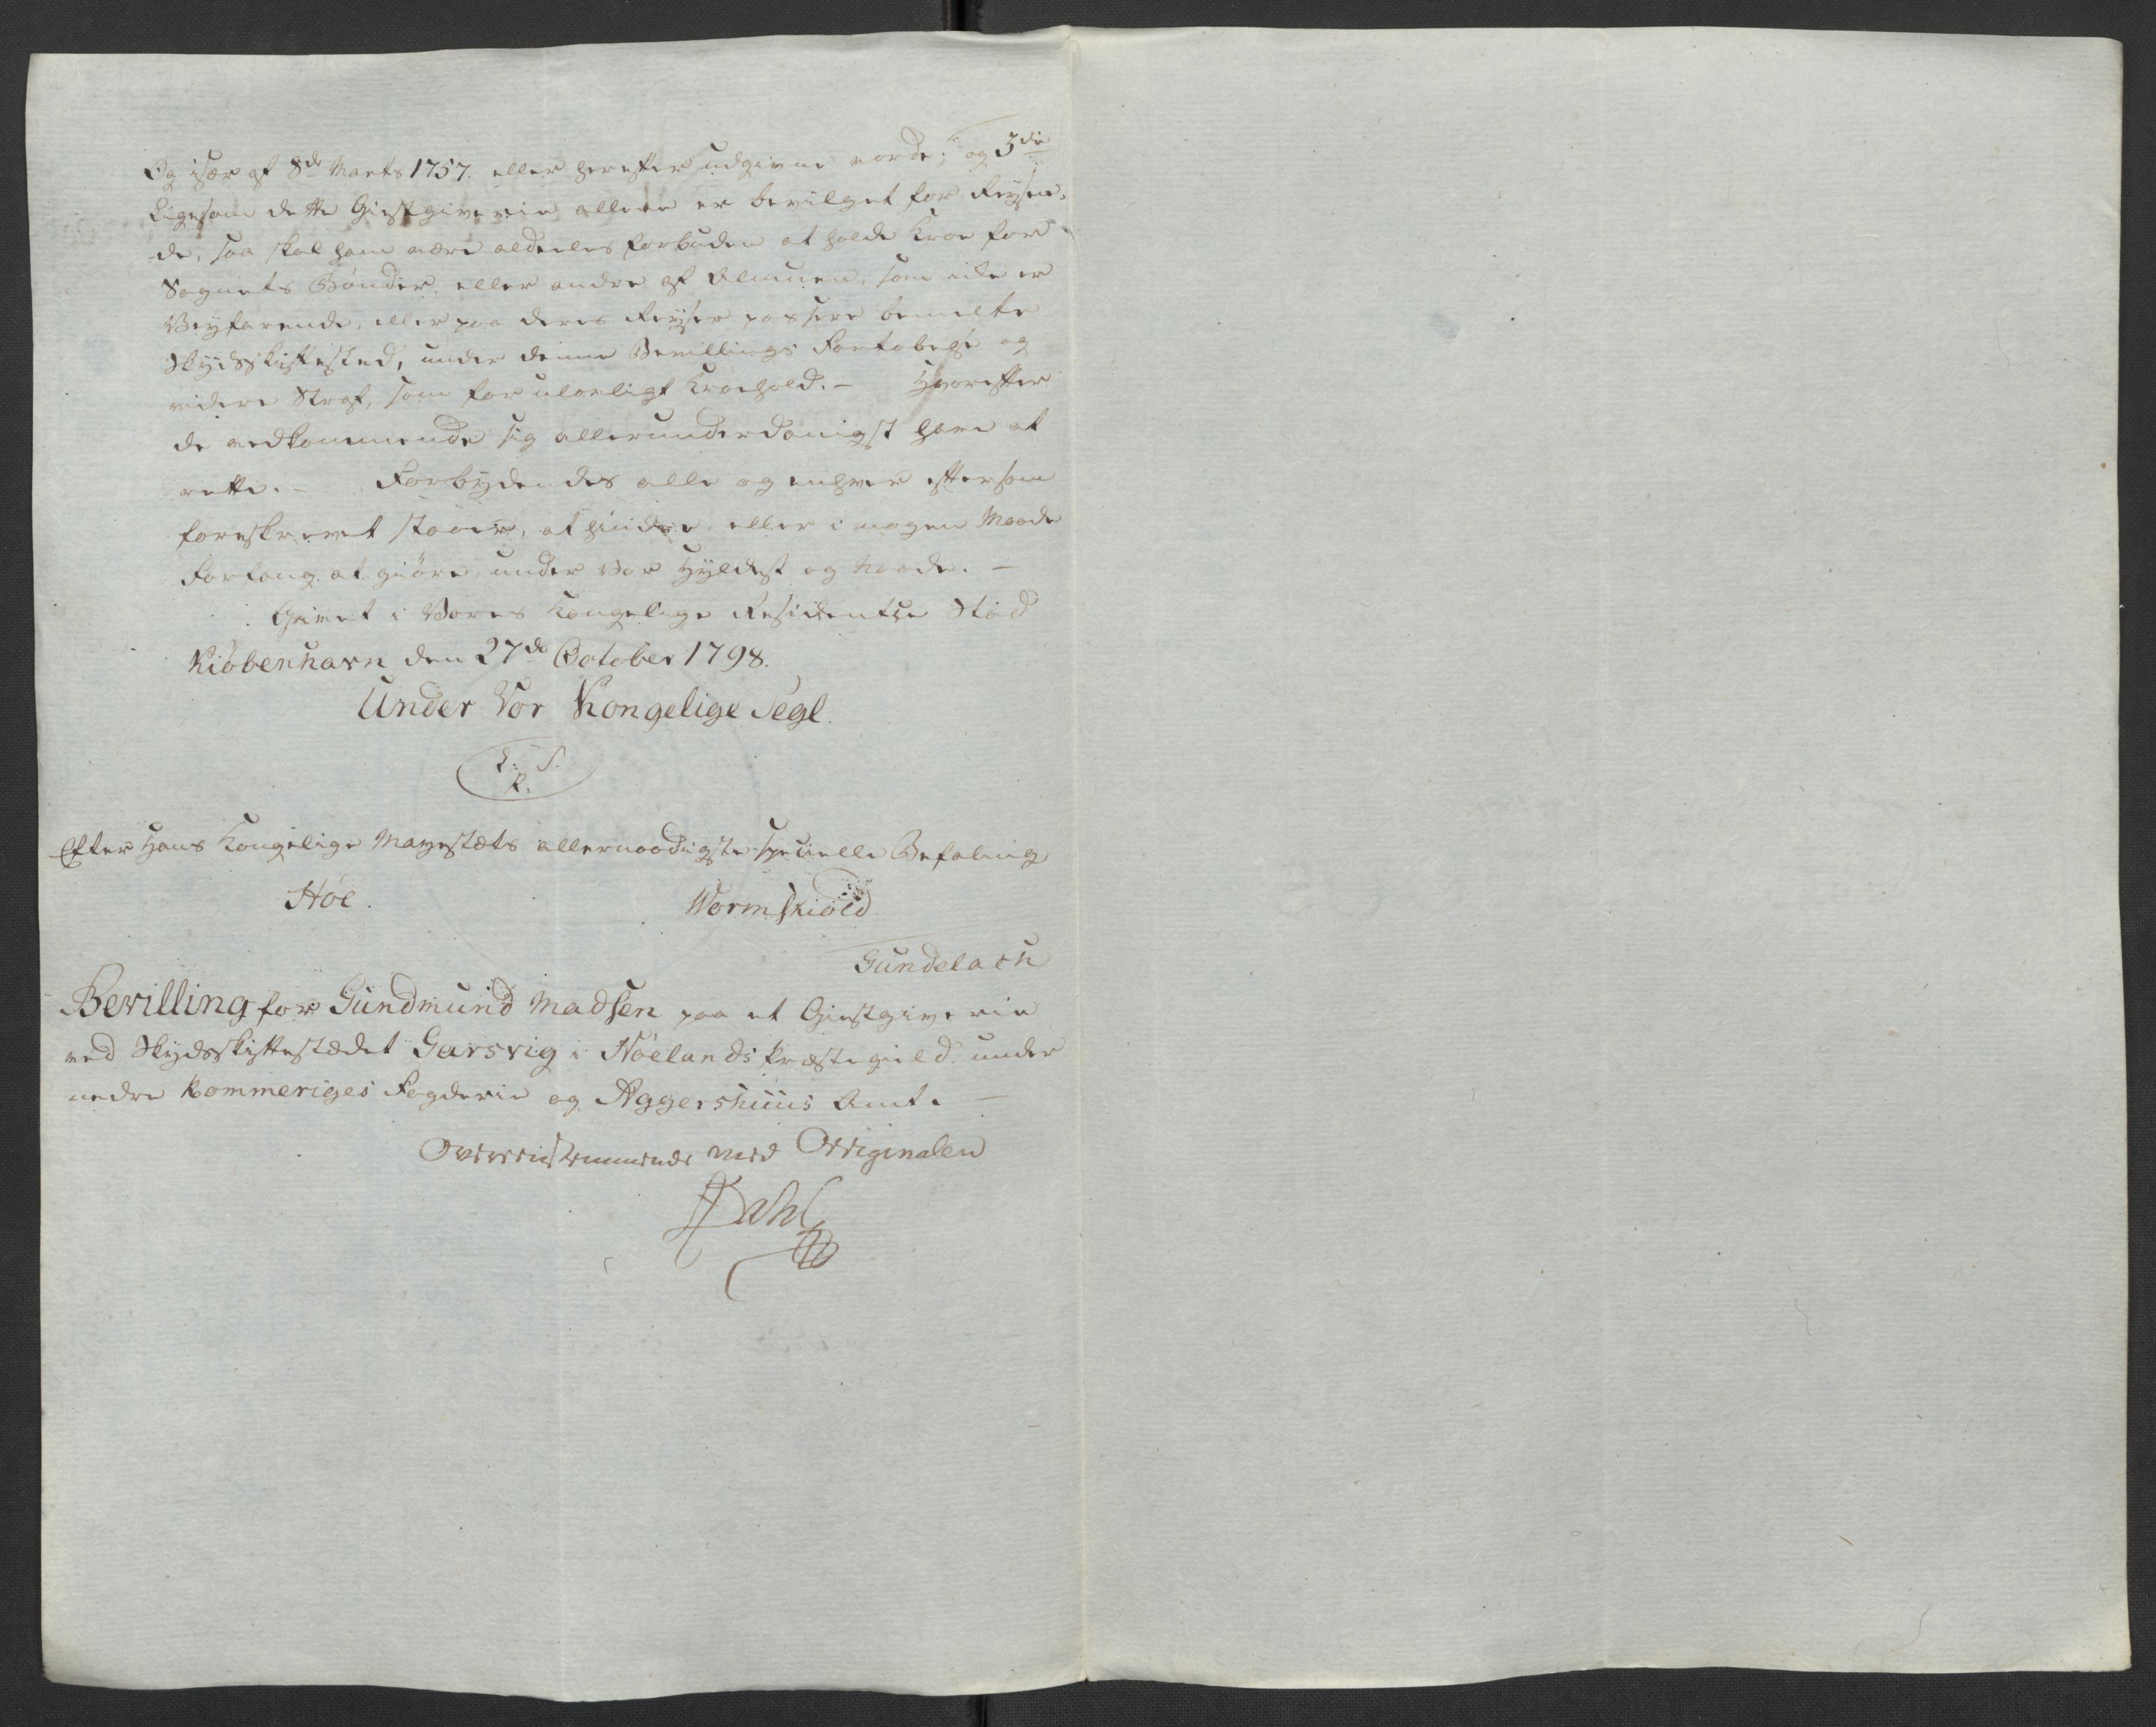 Og især af 8de Marts 1757. eller herefter udgivne vorde; og 3die
Ligesom dette Giestgiverie allene er bevilget for Reysen-
de, saa skal ham være aldeeles forbuden at holde Kroe for
Sognets Bønder, eller andre af Almuen, som icke er
Veyfarende, eller paa deres Reyser passere bemelte
Skydsskiftested, under denne Bevillings Fortabelse og
videre Straf, som for ulovligt Kroehold. - Hvorefter
de vedkommende sig allerunderdanigst have at
rette. - Forbydendes alle og enhver eftersom
foreskrevet staaer, at hindre, eller i nogen Maade
Forfang at giøre, under Vor Hyldest og Naade. -
Givet i Vores Kongelige Residentze Stad
Kiøbenhavn den 27de October 1798.
Under Vor Kongelige Segl.
L: S.
R:
Efter Hans Kongelige Mayestæts allernaadigste specielle Befaling
Høe.
Wormskiold
Gundelach
Bevilling for Gundmund Madsen paa et Giestgiverie
ved Skydsskiftestædet Garsvig i Høelands Præstegield, under
nedre Rommeriges Fogderie og Aggershuus Amt. -
Overeenstemmende med Originalen
Dahl